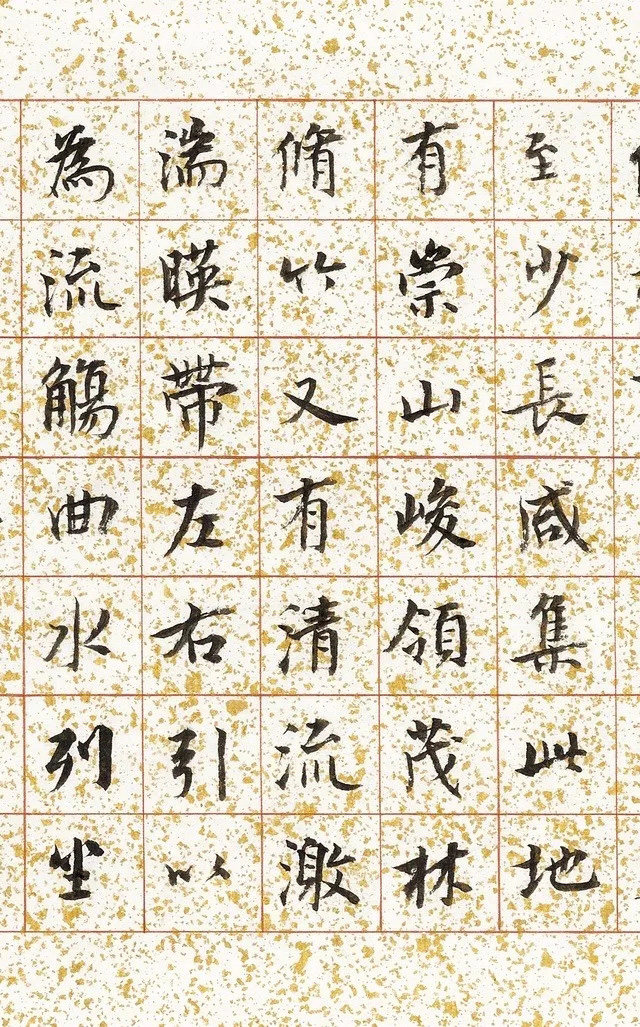 至少長咸集此地
有崇山峻領茂林
脩竹又有清流激
湍暎帶左右引以
為流觴曲水列坐